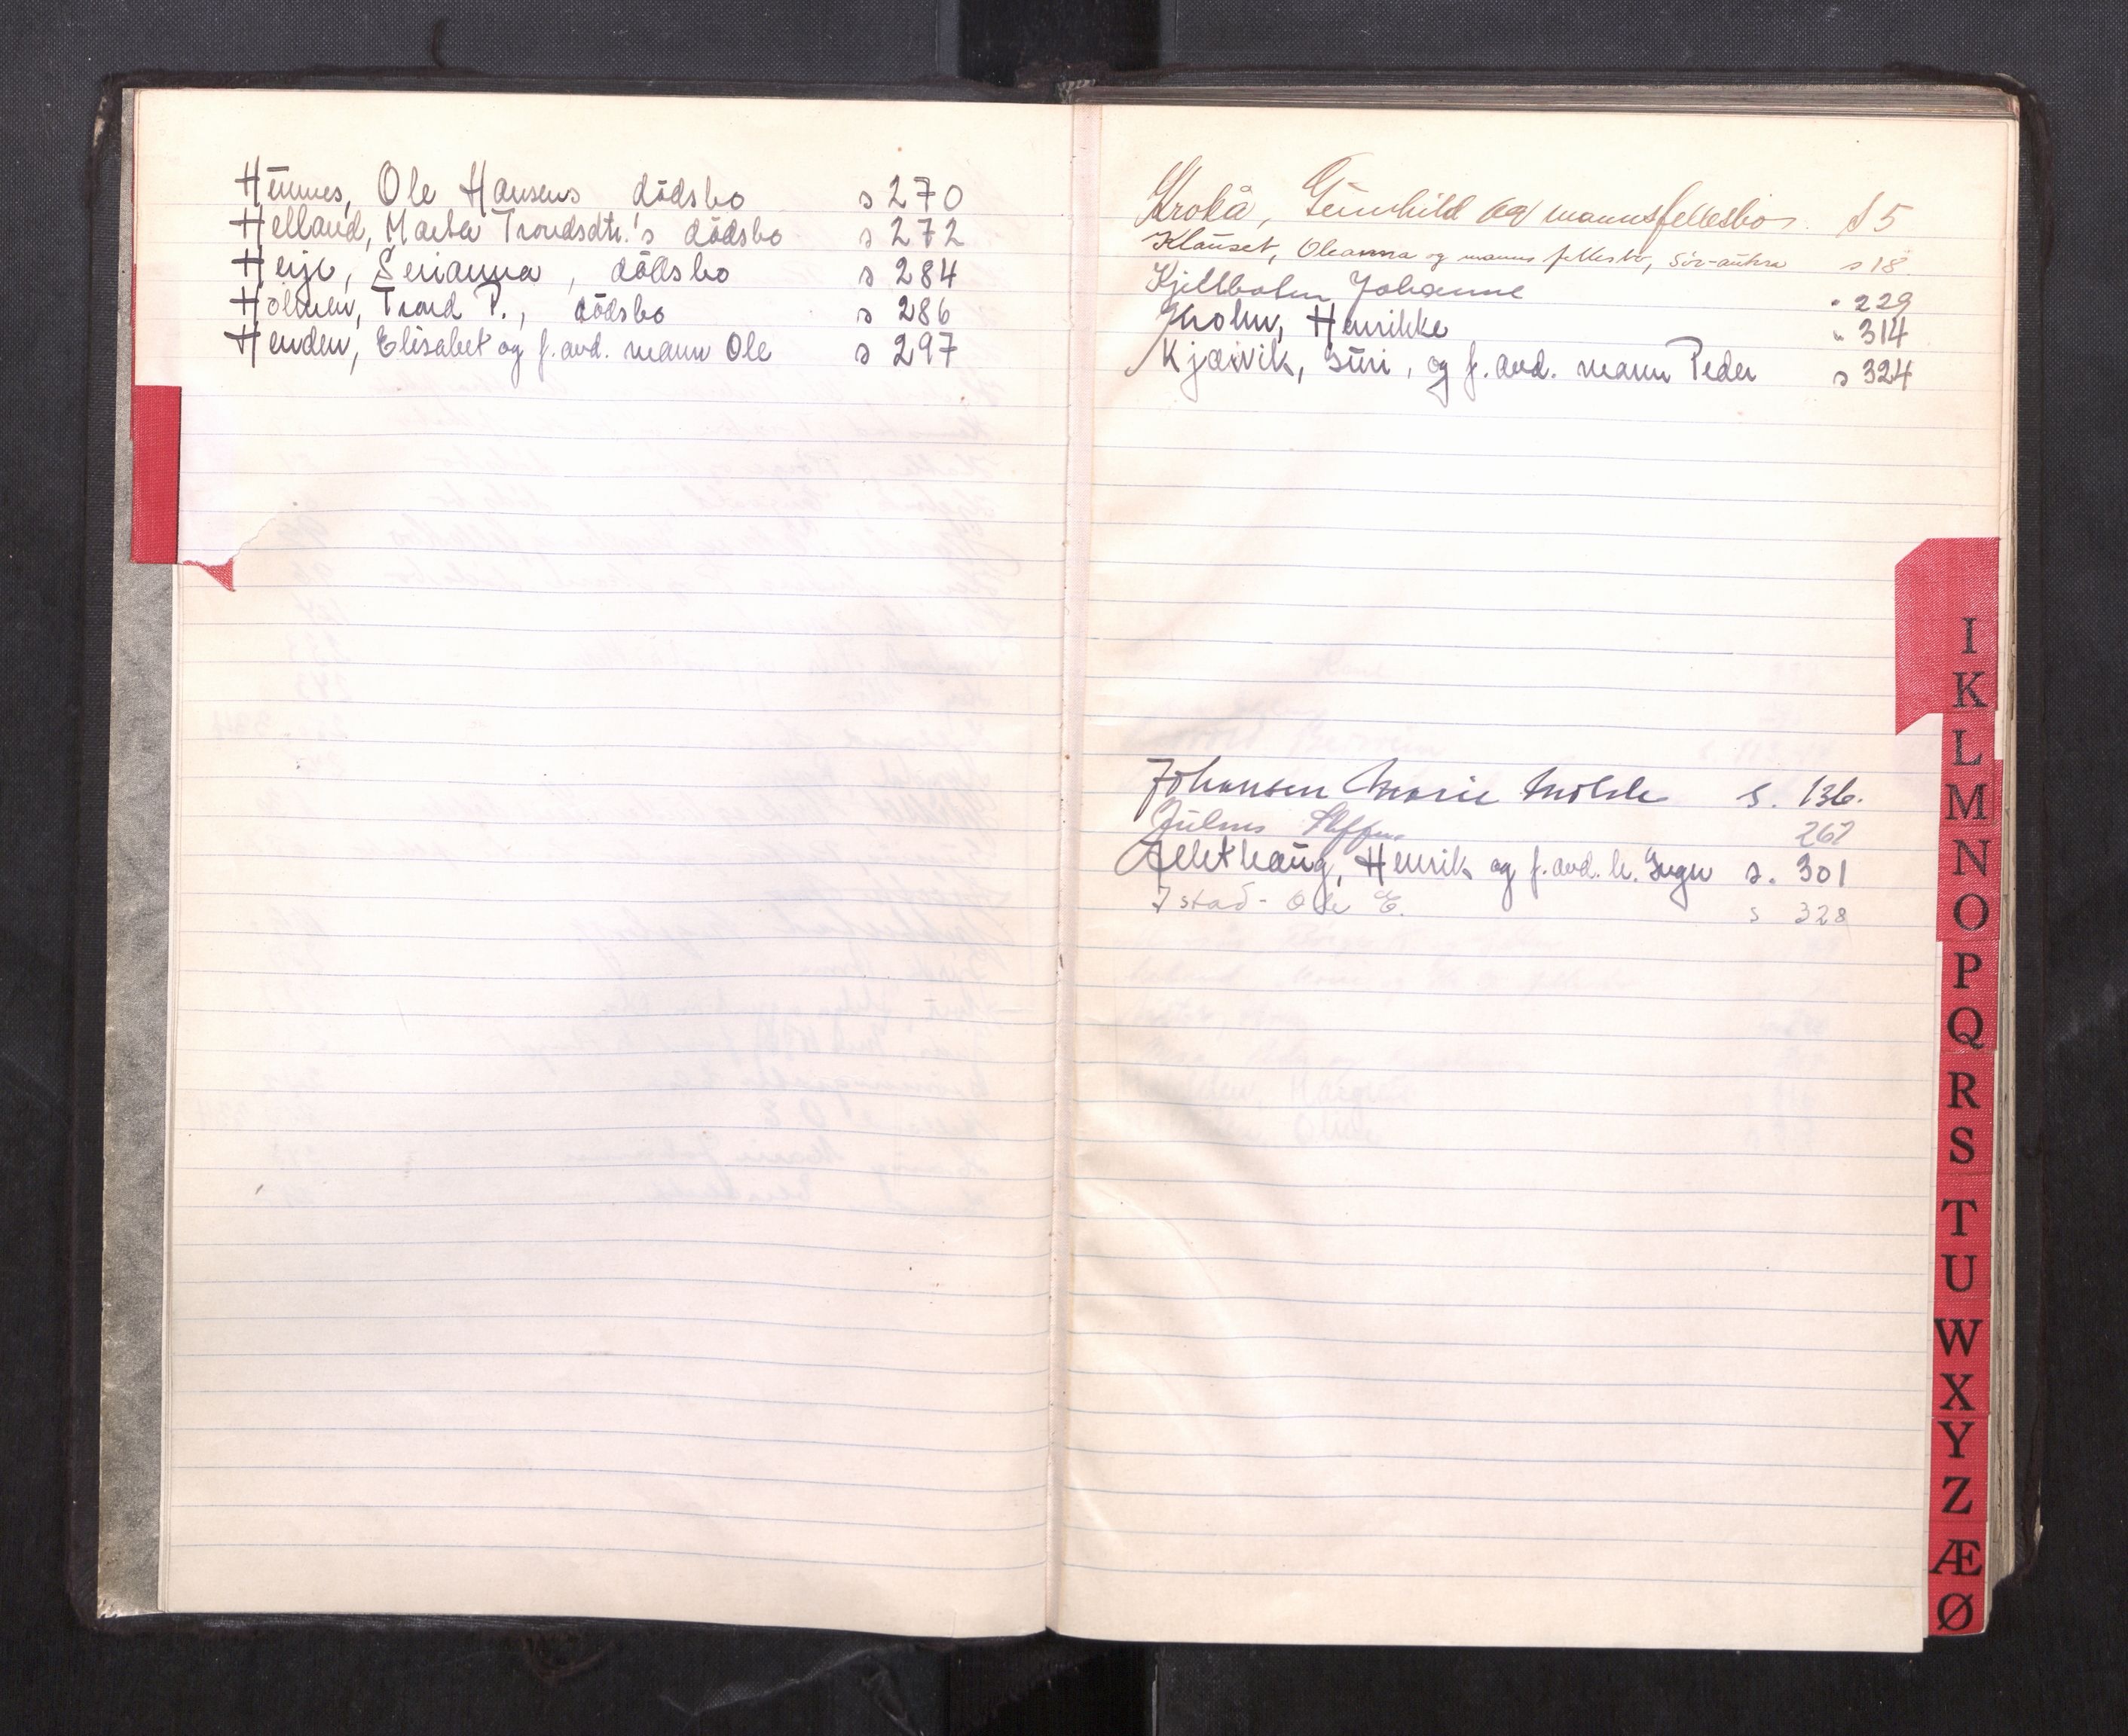 Humnes, Ole Hansens dödsbo s 270
Helland, Marta Trondsdtr.'s dödsbo s 272
Heije, Serianna, dödsbo s 284
Holmen, Trond P., dödsbo s 286
Henden, Elisabet og f. avd. mann Ole s 297
Krokå, Gunhild og manns fellesbo s 5
Klauset, Oleanna og manns fellesbo, Sör-aukra s 18
Kjellbotn Johanne " 229
Krohn, Henrikke " 314
Kjørvik, Guri, og f. avd. mann Peder s 324
Johansen Marie Molde s. 136.
Julnes Steffen 267
Jelthaug, Henrik og f. avd. h. Inger s. 301
Istad - Ole E. s 328
I
K
L
M
N
O
P
Q
R
S
T
U
W
X
Y
Z
Æ
Ø